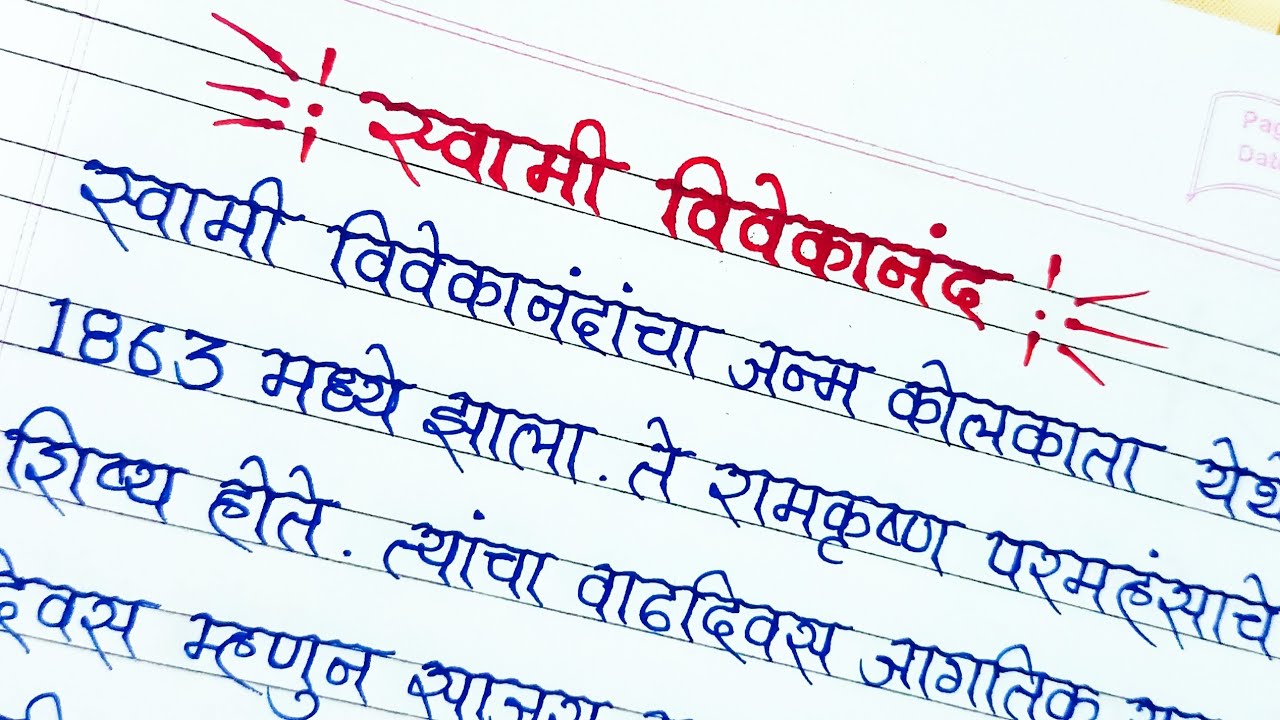 Pag
Dat
स्वामी विवेकानंद
स्वामी विवेकानंदांचा जन्म कोलकाता येथे
1863 मध्ये झाला. ते रामकृष्ण परमहंसाचे
शिष्य होते. त्यांचा वाढदिवस जागतिक
देवस म्हणुन साजरा